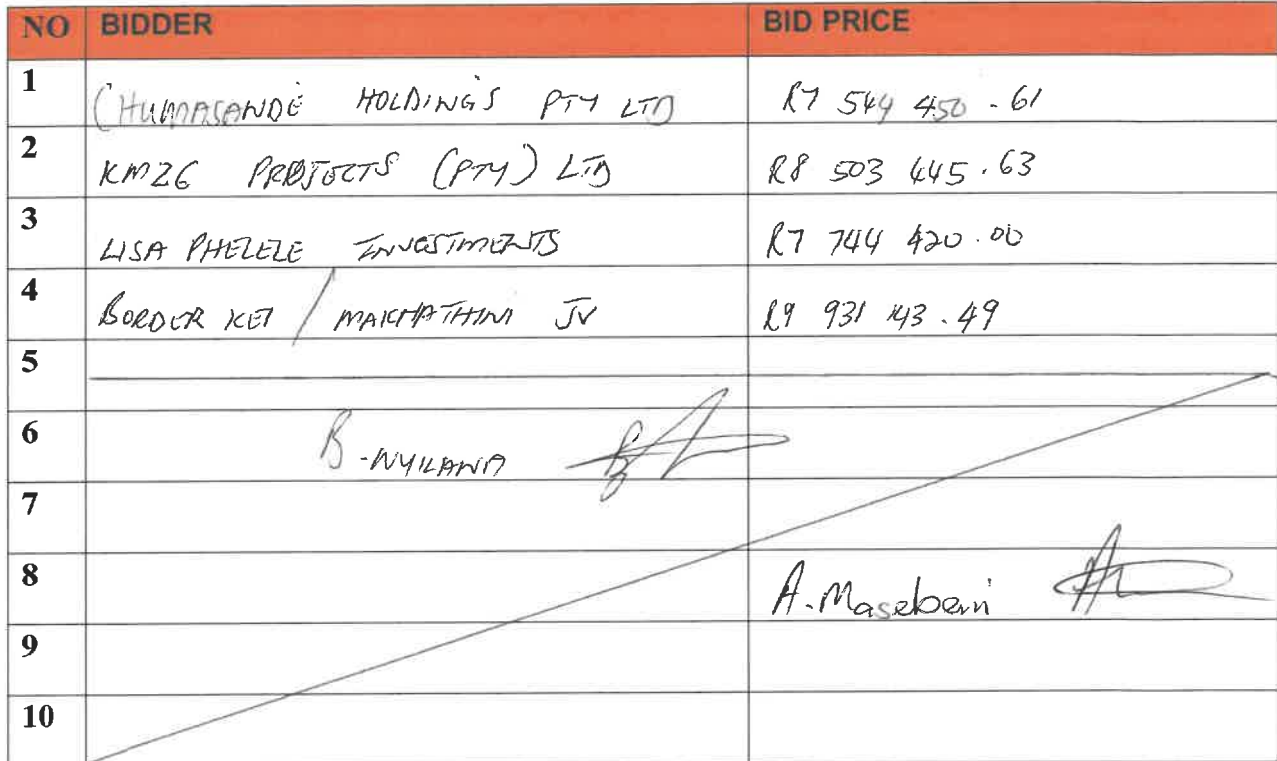 NO BIDDER BID PRICE
1 CHUMASANDE HOLDINGS PTY LTD R7 544 450.61
2 KMZG PROJECTS (PTY) LTD R8 503 445.63
3 LISA PHELELE INVESTMENTS R7 744 420.00
4 BORDER KEI / MAKHATHINI JV R9 931 143.49
5
6 B-NYILANA
7
8 A. Masebeni
9
10